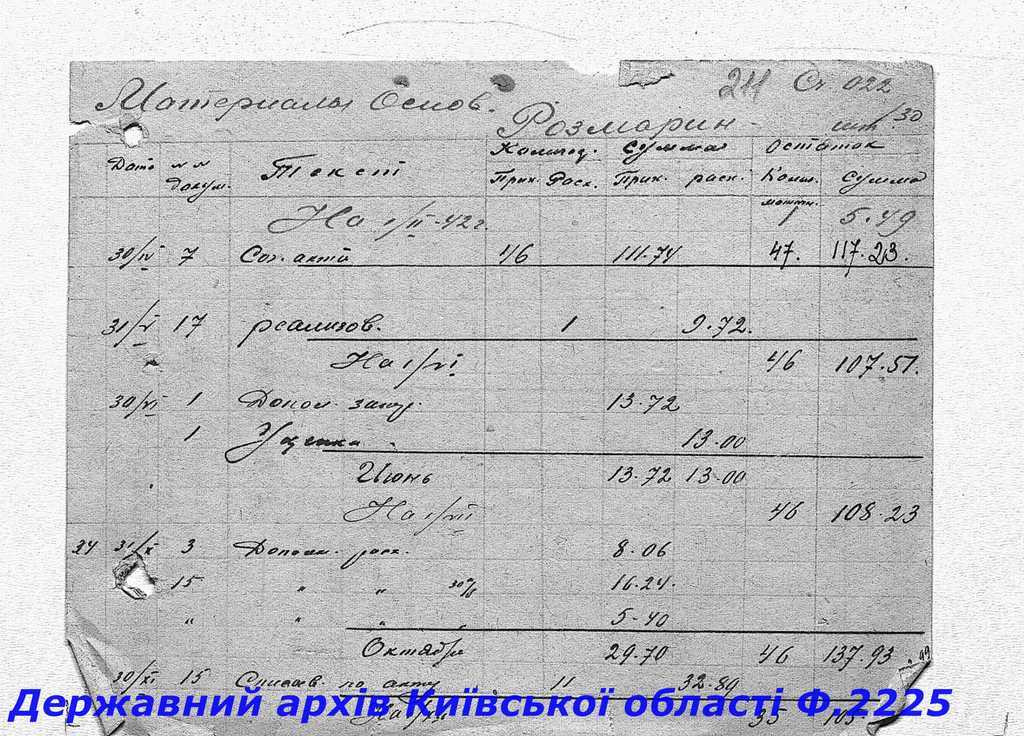 211 Ст 022
Материалы Основ.
Розмарин - шт /30
Дата №№ докум. Текст Колич. Сумма Остаток
Прих. Расх. Прих. расх. Колич. Сумма
На 1/II-42г. 1 5.49
30/IV 7 Сог. акта 46 111.74 47. 117.23.
31/V 17 реализов. 1 9.72.
На 1/VI 46 107.51.
30/VI 1 Допол. 13.72
1 Уценка 13.00
Июнь 13.72 13.00
На 1/VII 46 108.23
24 31/X 3 Дополн. расх. 8.06
15 " " 16.24.
" " " " 5-40
Октябрь 29.70 46 137.93
30/XI 15 Списав. по акту 11 32.80
На 35 105.
Державний архів Київської області Ф.2225